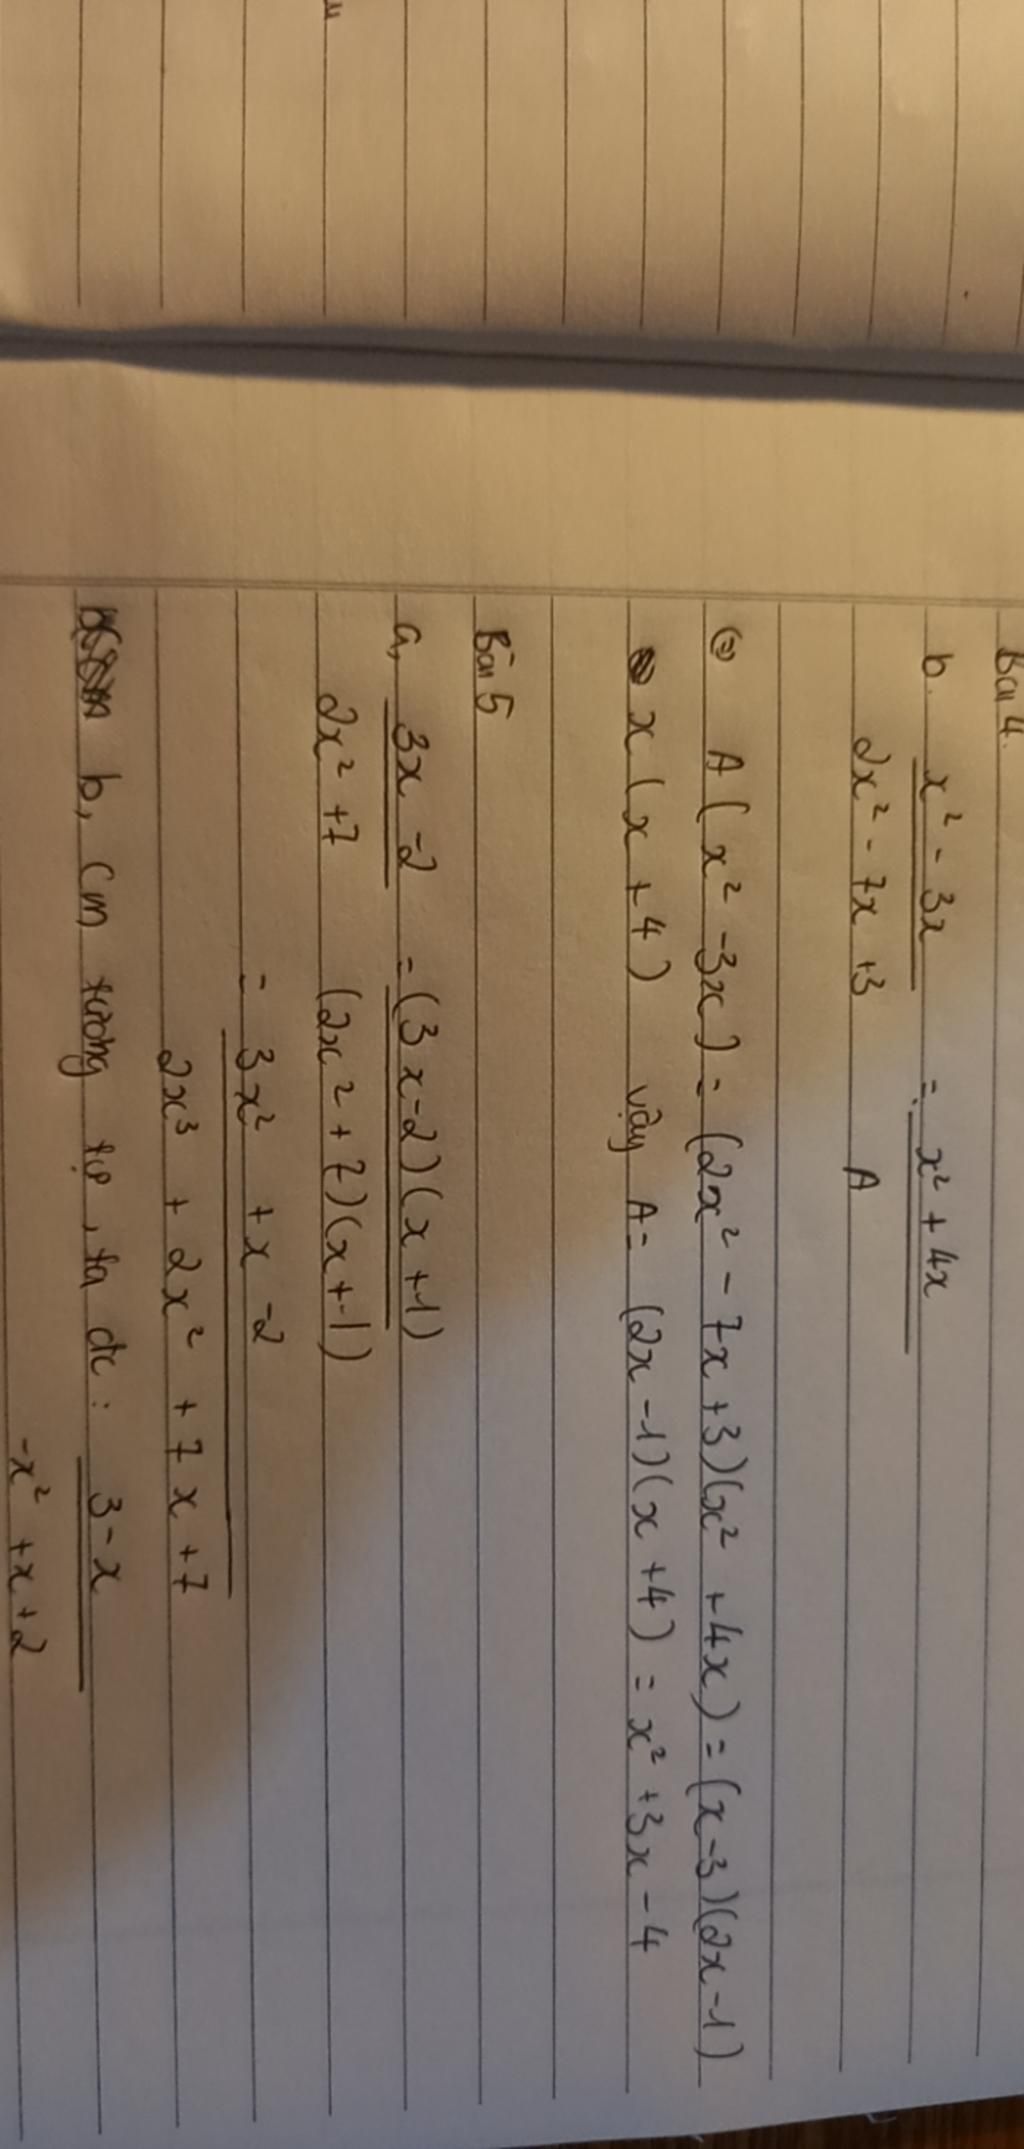 Bài 4.
b. x² - 3x = x² + 4x
2x² - 7x + 3 A
(=) A (x² - 3x) = (2x² - 7x + 3)(x² + 4x) = (x - 3)(2x - 1)
x (x + 4) Vậy A = (2x - 1)(x + 4) = x² + 3x - 4
Bài 5
a, 3x - 2 = (3x - 2)(x + 1)
2x² + 7 (2x² + 7)(x + 1)
= 3x² + x - 2
2x³ + 2x² + 7x + 7
b, Cm tương tự, ta dc : 3 - x
-x² + x + 2